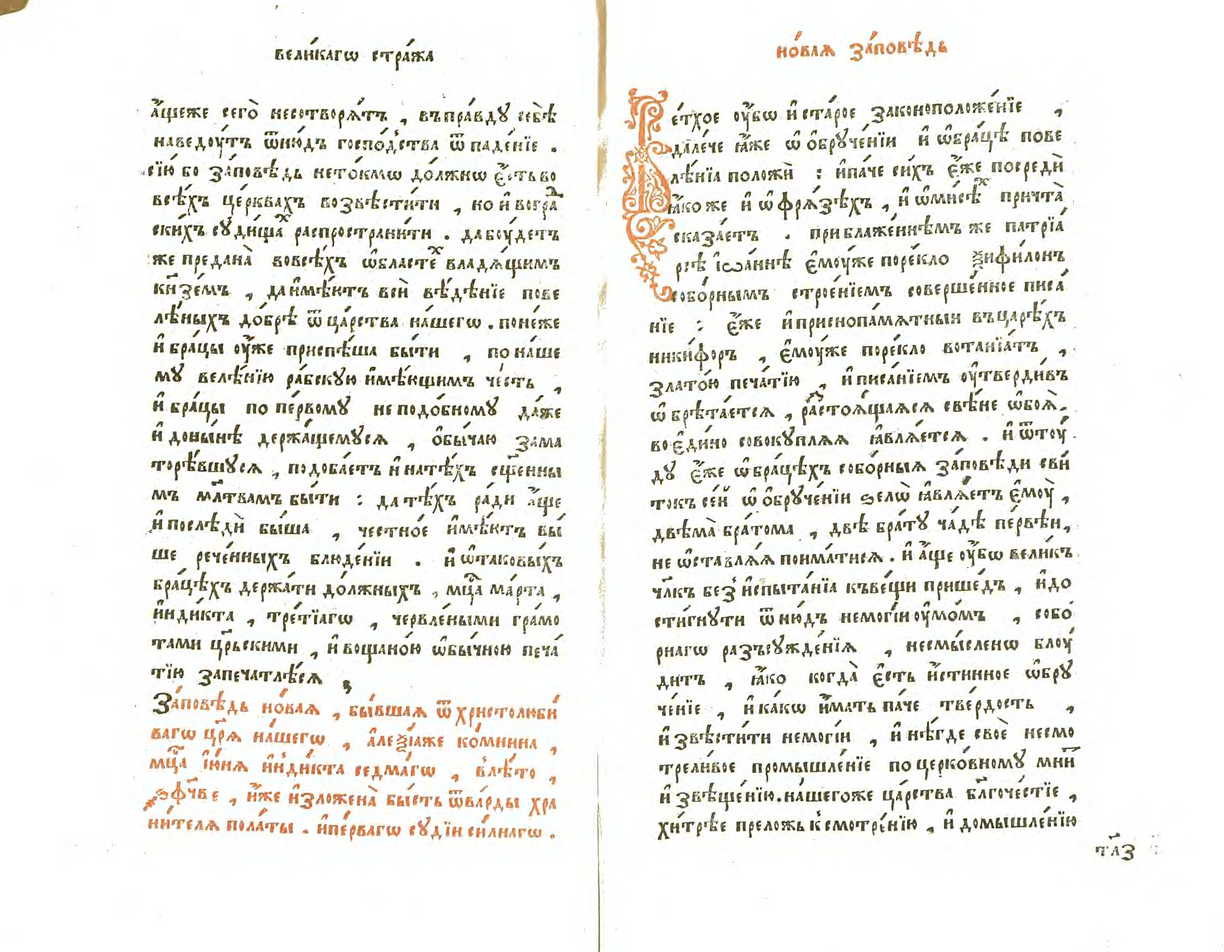 вели́кагѡ стра́жа
а҆́щеже сего̀ несотворѧ́тъ , въпра́вдꙋ себѣ̀
наведꙋ́тъ ѿню́дъ госпо́дства ѿпаде́нїе .
сїю́ бо за́повѣдь нето́кмѡ до́лжнѡ є҆́сть во
всѣ́хъ це́рквахъ возвѣсти́ти , но и҆ вогра́д
скихъ сꙋди́щахъ распространи́ти . да бꙋ́детъ
же предана̀ вовсѣ́хъ ѡ҆бластехъ владꙋ́щимъ
кнѧзе́мъ , да и҆мѣ́ютъ всѝ вѣ́дѣнїе пове
лѣ́ныхъ до́брѣ ѿ ца́рства на́шегѡ . поне́же
и҆ бра́цы ᲂу҆́же приспѣ́ша бы́ти , по на́ше
мꙋ велѣ́нїю ра́бскꙋю и҆мѣ́ющимъ че́сть ,
и҆ бра́цы по пе́рвомꙋ не подо́бномꙋ да́же
и҆ доны́нѣ держа́щемꙋсѧ , ѻ҆бы́чаю зама
торѣ́вшꙋсѧ , подоба́етъ и҆ на тѣ́хъ сщ҃е́нны
мъ мл҃твамъ бы́ти : да тѣ́хъ ра́ди а҆́ще
и҆ послѣдѝ бы́ша , че́стное и҆мѣ́ютъ вы́
ше рече́нныхъ блюде́нїи . и҆ ѡ҆таковы́хъ
бра́цѣхъ держа́ти до́лжныхъ , мцⷭ҇а ма́рта ,
и҆нди́кта , тре́тїагѡ , черв­ле́ными гра́мо
тами црⷭ҇кими , и҆ воща́ною ѡ҆бы́чною печа́
тїю запечатлѣ́сѧ
За́повѣдь но́ваѧ , бы́вшаѧ ѿ христолюби́
вагѡ црѧ҃̀ на́шегѡ , а҆леѯі́аже ко́мнина ,
мцⷭ҇а і҆ю́нѧ и҆нди́кта седма́гѡ , влѣ́то ,
҂ѕфч҃ве , и҆́же и҆зложена̀ бы́сть ѿ ва́рды хра
ни́телѧ пола́ты . и҆ пе́рвагѡ сꙋдїѝ си́лнагѡ .
но́ваѧ за́повѣдь
Ве́тхое ᲂу҆́бѡ и҆ ста́рое законоположе́нїе ,
дале́че ꙗ҆́же ѡ҆ ѻ҆брꙋче́нїи и҆ ѡ҆бра́цѣ пове
лѣ́нїа положѝ : и҆ па́че си́хъ є҆́же посредѝ
ꙗ҆́коже и҆ ѡ҆ фрѧ́зѣхъ , и҆ ѡ҆мисѣ́хъ при́тча
сказа́етъ . при блаже́ннѣмъ же патрїа́
рсѣ і҆ѡа́ннѣ є҆мꙋ́же поре́кло ѯифили́нъ
собо́рнымъ строе́нїемъ соверше́нное писа́
нїе : є҆́же и҆ приснопа́мѧтныи въцарѣ́хъ
ники́форъ , є҆мꙋ́же поре́кло вотанїа́тъ ,
злато́ю печа́тїю , и҆ писа́нїемъ ᲂу҆тверди́въ
ѡ҆брѣта́етсѧ , растоѧ́щаѧсѧ свѣ́не ѡ҆боѧ̀
во є҆ди́но совокꙋплѧ́ѧ ꙗ҆влѧ́етсѧ . и҆ ѿтꙋ́
дꙋ є҆́же ѡ҆бра́цѣхъ собо́рныѧ за́повѣди сви́
токъ се́й ѡ҆ ѻ҆брꙋче́нїи ѕѣлѡ̀ ꙗ҆влѧ́етъ є҆мꙋ̀ ,
двѣма̀ бра́тома , двѣ̀ бра́тꙋ ча́дѣ пе́рвѣи ,
не ѡ҆ставлѧ́ѧ поима́тисѧ . и҆ а҆́ще ᲂу҆́бѡ вели́къ
чл҃къ без̾ и҆спыта́нїа къве́щи прише́дъ , и҆ до
сти́гнꙋти ѿню́дъ немогі́и ᲂу҆мо́мъ , собо́
рнагѡ разъсꙋжде́нїѧ , несмы́сленѡ блꙋ́
дитъ , ꙗ҆́ко когда̀ є҆́сть и҆́стинное ѡ҆брꙋ
че́нїе , и҆ ка́кѡ и҆́мать па́че тве́рдость ,
и҆звѣсти́ти немогі́и , и҆ нѣ́где своѐ несмо
трели́вое промышле́нїе по церко́вномꙋ мни́т
и҆звѣще́нїю . на́шегоже ца́рства бл҃гоче́стїе ,
хитрѣ́е прело́жь к смотре́нїю , и҆ домышле́нїю
тл҃з